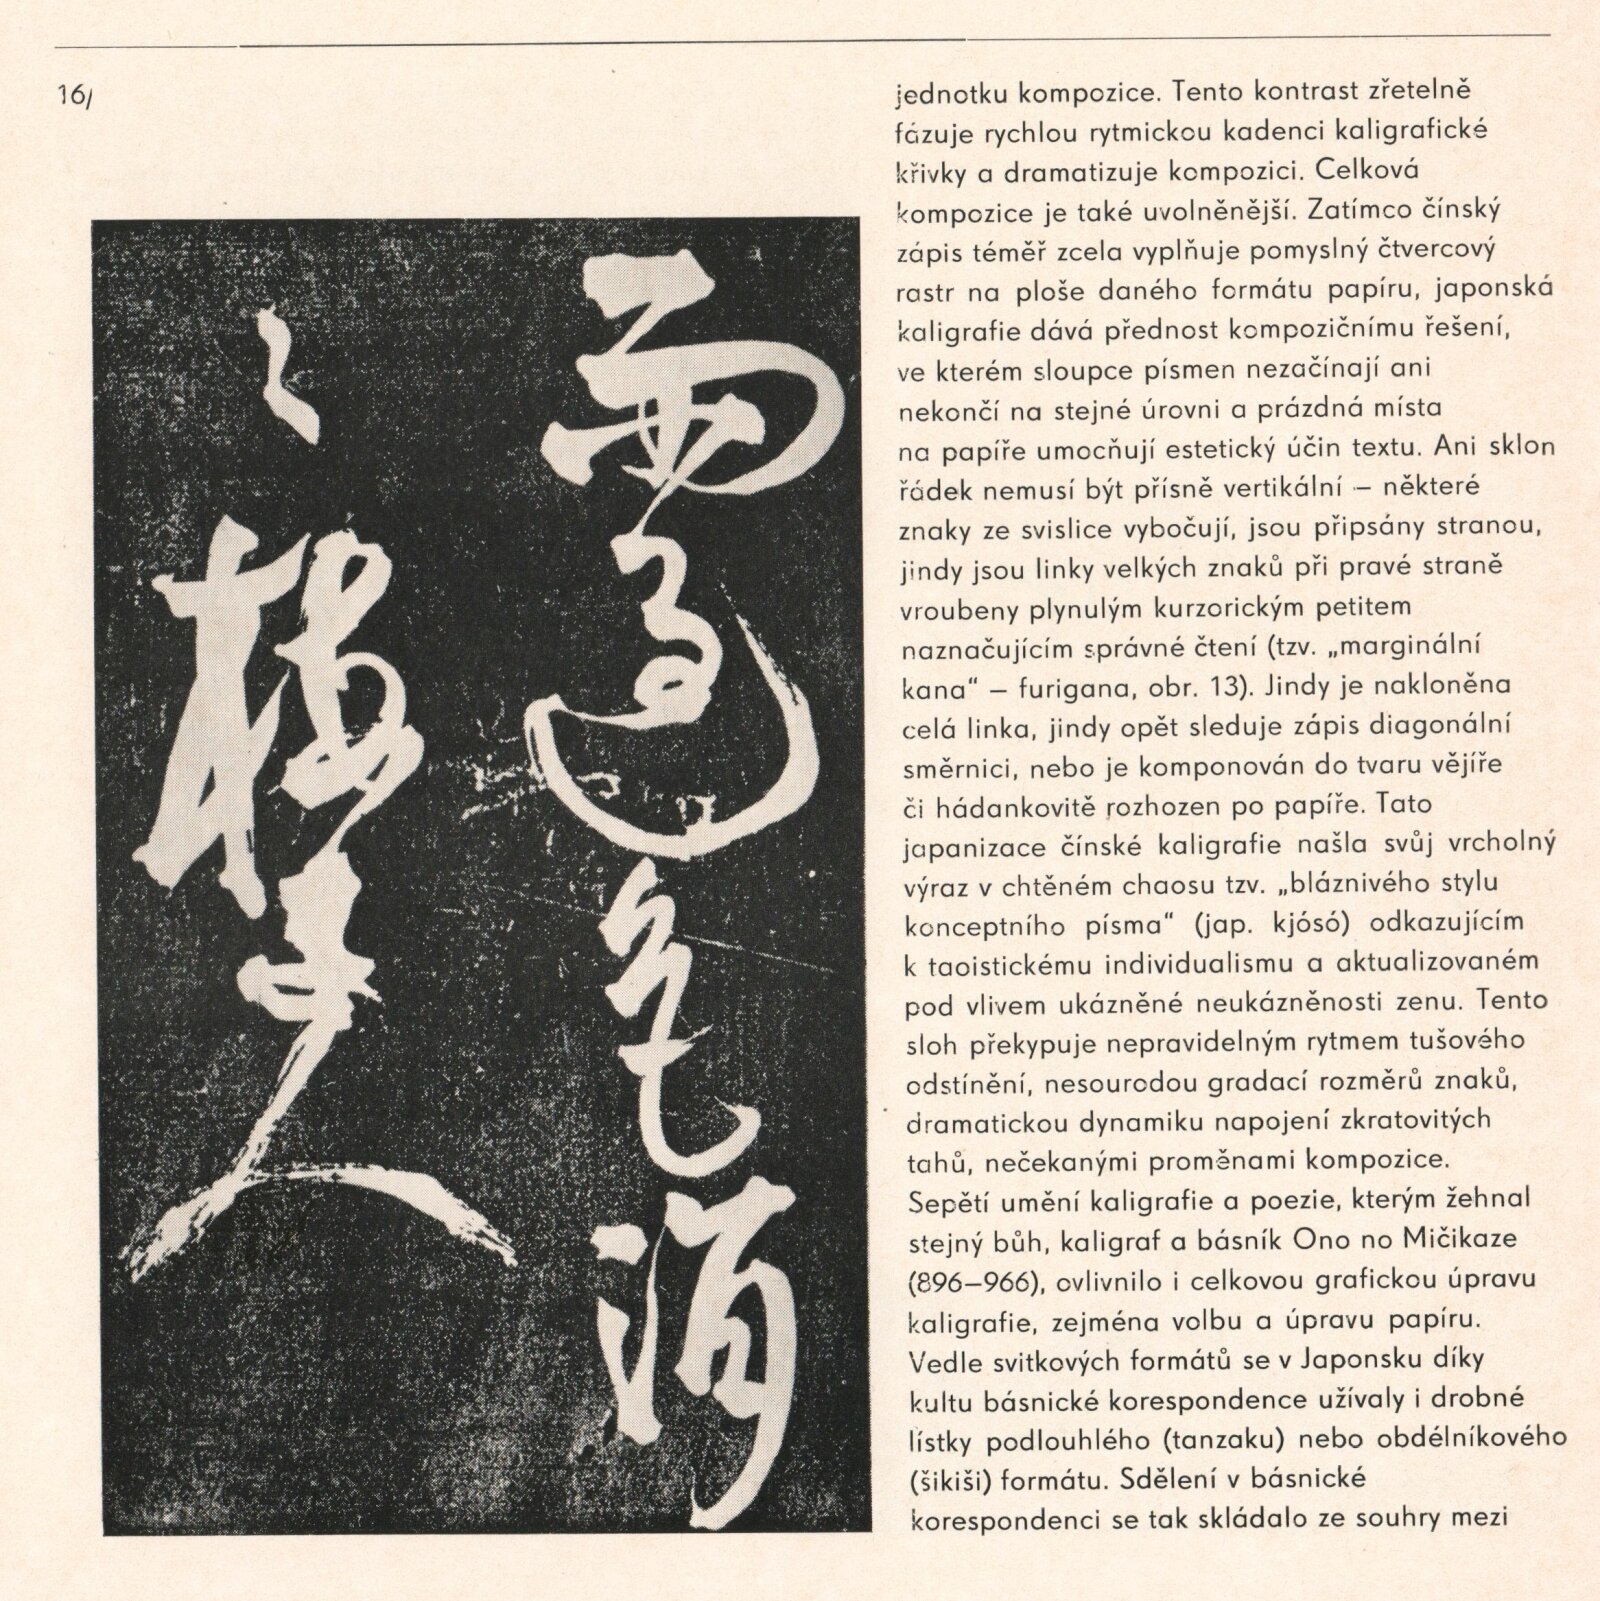 16/
jednotku kompozice. Tento kontrast zřetelně
fázuje rychlou rytmickou kadenci kaligrafické
křivky a dramatizuje kompozici. Celková
kompozice je také uvolněnější. Zatímco čínský
zápis téměř zcela vyplňuje pomyslný čtvercový
rastr na ploše daného formátu papíru, japonská
kaligrafie dává přednost kompozičnímu řešení,
ve kterém sloupce písmen nezačínají ani
nekončí na stejné úrovni a prázdná místa
na papíře umocňují estetický účin textu. Ani sklon
řádek nemusí být přísně vertikální – některé
znaky ze svislice vybočují, jsou připsány stranou,
jindy jsou linky velkých znaků při pravé straně
vroubeny plynulým kurzorickým petitem
naznačujícím správné čtení (tzv. „marginální
kana“ – furigana, obr. 13). Jindy je nakloněna
celá linka, jindy opět sleduje zápis diagonální
směrnici, nebo je komponován do tvaru vějíře
či hádankovitě rozhozen po papíře. Tato
japanizace čínské kaligrafie našla svůj vrcholný
výraz v chtěném chaosu tzv. „bláznivého stylu
konceptního písma“ (jap. kjósó) odkazujícím
k taoistickému individualismu a aktualizovaném
pod vlivem ukázněné neukázněnosti zenu. Tento
sloh překypuje nepravidelným rytmem tušového
odstínění, nesourodou gradací rozměrů znaků,
dramatickou dynamiku napojení zkratovitých
tahů, nečekanými proměnami kompozice.
Sepětí umění kaligrafie a poezie, kterým žehnal
stejný bůh, kaligraf a básník Ono no Mičikaze
(896–966), ovlivnilo i celkovou grafickou úpravu
kaligrafie, zejména volbu a úpravu papíru.
Vedle svitkových formátů se v Japonsku díky
kultu básnické korespondence užívaly i drobné
lístky podlouhlého (tanzaku) nebo obdélníkového
(šikiši) formátu. Sdělení v básnické
korespondenci se tak skládalo ze souhry mezi